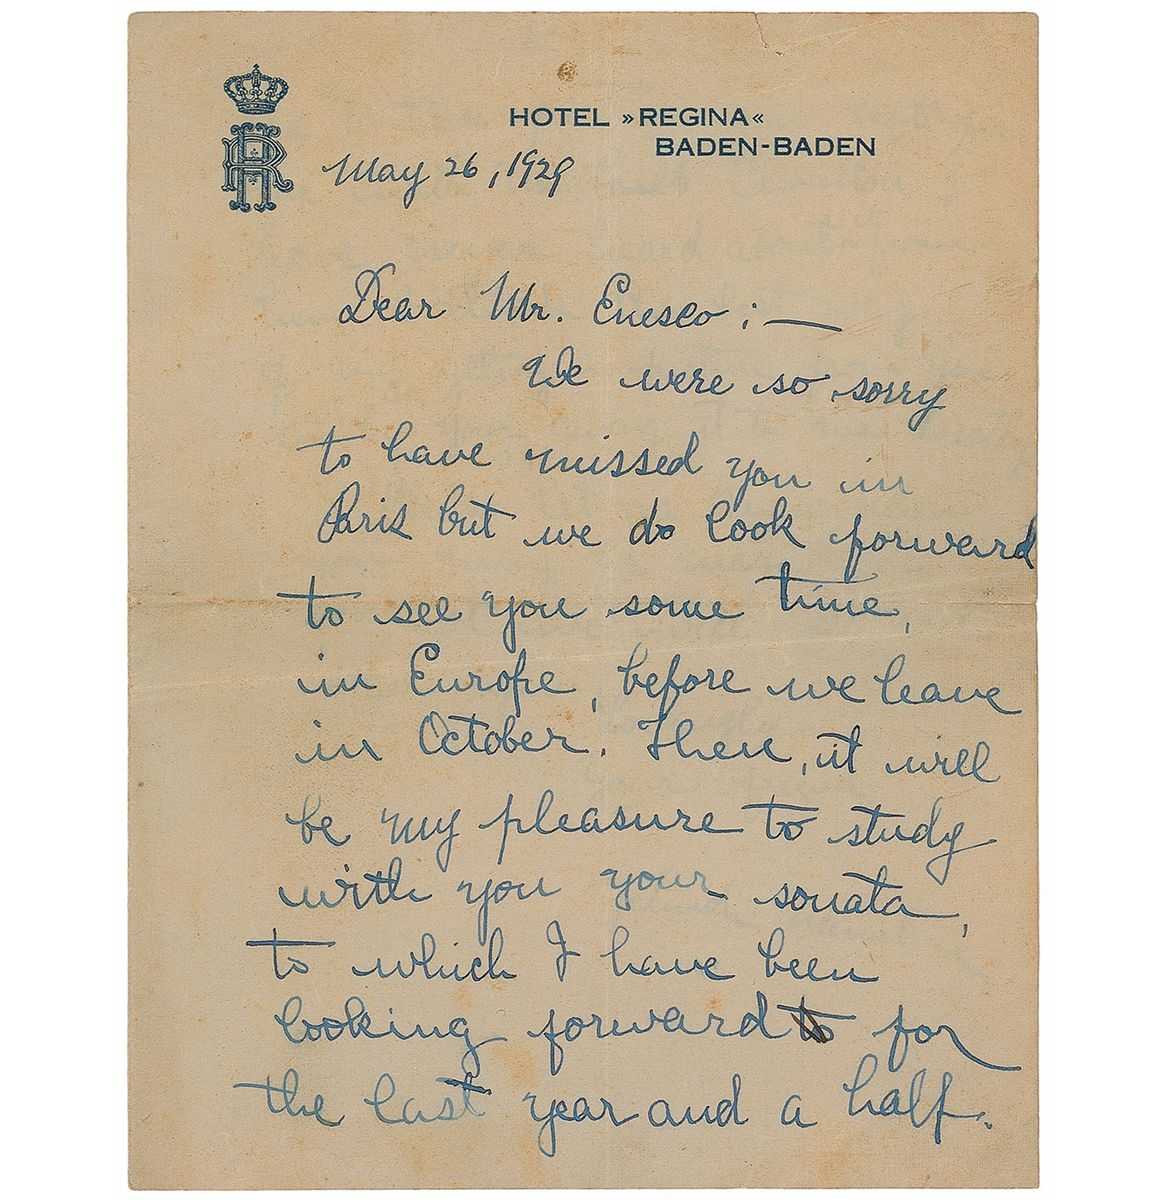 HOTEL »REGINA«
BADEN-BADEN
May 26, 1929
Dear Mr. Enesco : —
We were so sorry
to have missed you in
Paris but we do look forward
to see you some time,
in Europe, before we leave
in October. Then, it will
be my pleasure to study
with you your sonata,
to which I have been
looking forward for
the last year and a half.